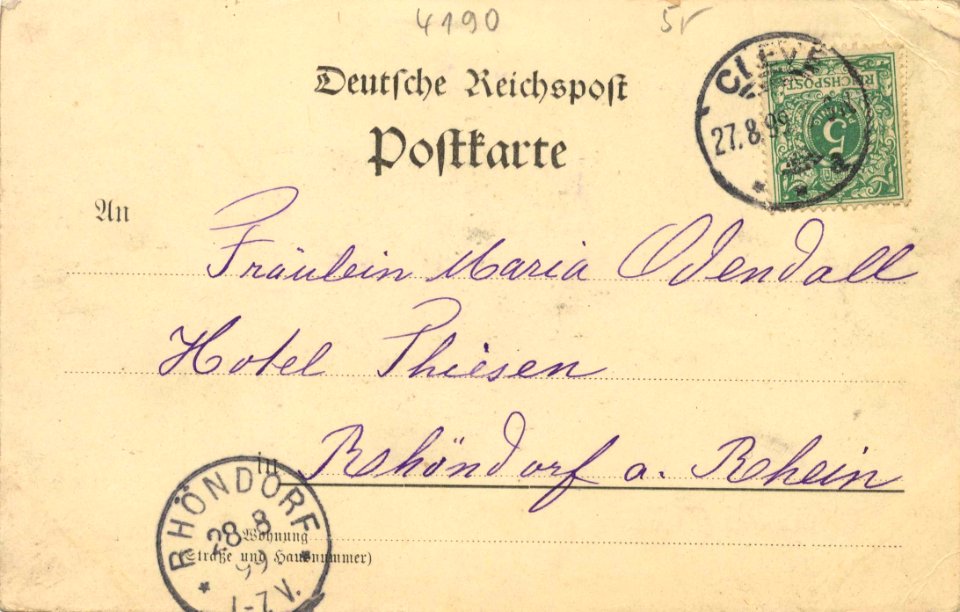 4190 5r
Deutsche Reichspost
Postkarte
CLEVE
27.8.99
a
REICHSPOST
5
PFENNIG
An
Fräulein Maria Odendall
Hotel Thiesen
in Rhöndorf a. Rhein
RHÖNDORF
28 8
99
1-7 V.
Wohnung
(Straße und Hausnummer)